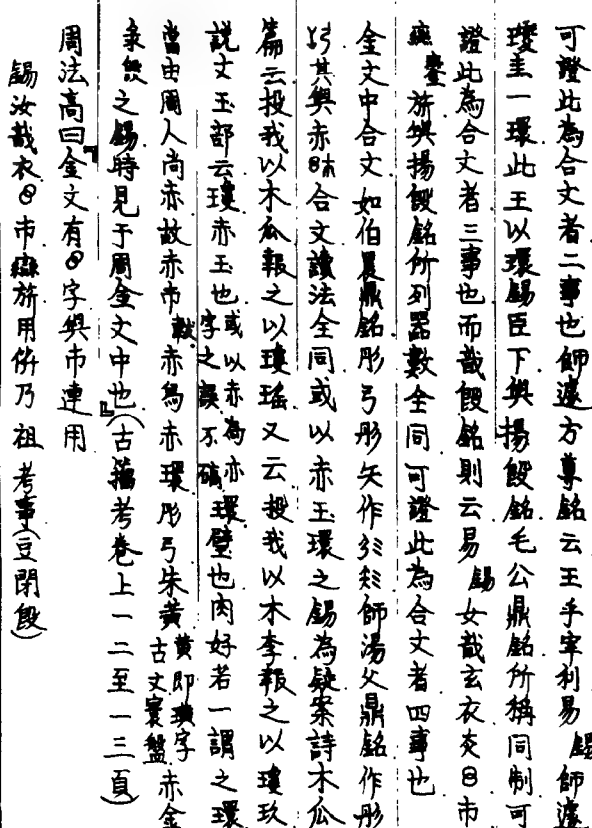 可證此為合文者二事也師遽方尊銘云王乎宰利易錫師遽
㻏圭一環此王以環錫臣下與揚𣪘銘毛公鼎銘所稱同制可
證此為合文者三事也而𢦏𣪘銘則云易錫女𢦏玄衣赤日市
䜌旂與揚𣪘銘所列器數全同可證此為合文者四事也
金文中合文如伯晨鼎銘彤弓彤矢作師湯父鼎銘作彤
其與赤合文讀法全同或以赤玉環之錫為疑案詩木瓜
篇云投我以木瓜報之以瓊瑤又云投我以木李報之以瓊玖
說文玉部云瓊赤玉也或以赤為亦字之誤不確環璧也肉好若一謂之環
當由周人尚赤故赤市赤舄赤環彤弓朱黃黃即璜字古文寰盤赤金
之錫時見于周金文中也』(古籀考卷上一二至一三頁)
周法高曰『金文有字與市連用
錫汝𢦏衣市䜌旂用倂乃祖考事(豆閉𣪘)